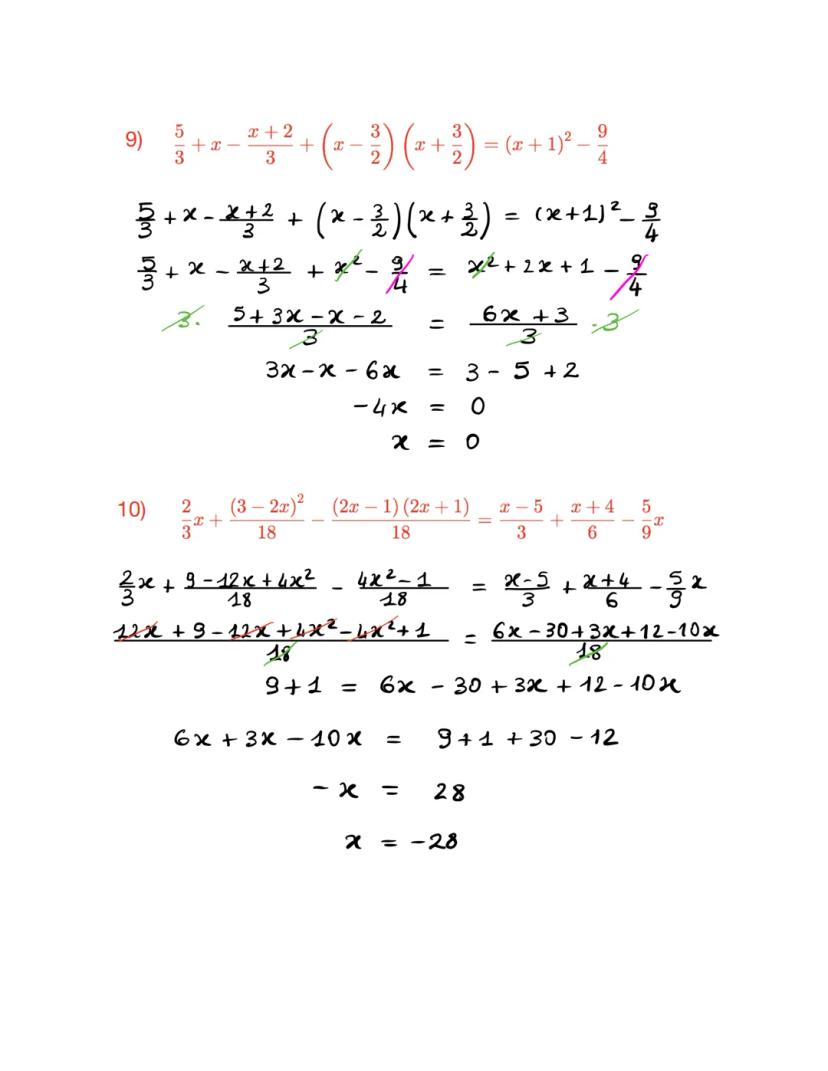 9) 5/3 + x − (x + 2)/3 + (x − 3/2)(x + 3/2) = (x + 1)² − 9/4
5/3 + x − (x+2)/3 + (x − 3/2)(x + 3/2) = (x+1)² − 9/4
5/3 + x − (x+2)/3 + x² − 9/4 = x² + 2x + 1 − 9/4
3· (5 + 3x − x − 2)/3 = (6x + 3)/3 ·3
3x − x − 6x = 3 − 5 + 2
−4x = 0
x = 0
10) 2/3x + (3 − 2x)²/18 − (2x − 1)(2x + 1)/18 = (x − 5)/3 + (x + 4)/6 − 5/9x
2/3x + (9 − 12x + 4x²)/18 − (4x² − 1)/18 = (x − 5)/3 + (x + 4)/6 − 5/9x
(12x + 9 − 12x + 4x² − 4x² + 1)/18 = (6x − 30 + 3x + 12 − 10x)/18
9 + 1 = 6x − 30 + 3x + 12 − 10x
6x + 3x − 10x = 9 + 1 + 30 − 12
−x = 28
x = −28